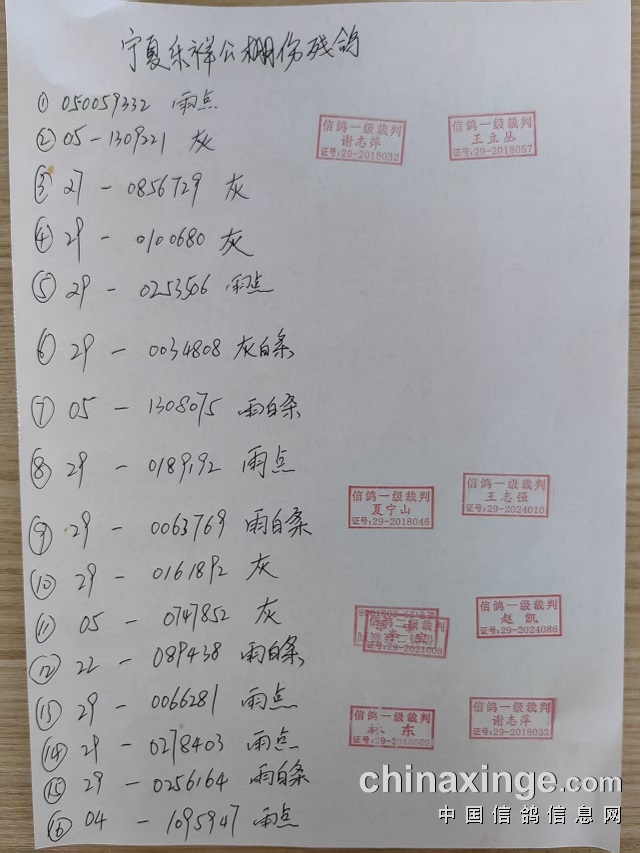 宁夏乐祥公棚伤残鸽
① 050059332 雨点
② 05-1309221 灰
③ 27-0856729 灰
④ 29-0100680 灰
⑤ 29-0253506 雨点
⑥ 29-0034808 灰白条
⑦ 05-1308075 雨白条
⑧ 29-0189192 雨点
⑨ 29-0063769 雨白条
⑩ 29-0161892 灰
⑪ 05-0747852 灰
⑫ 22-089438 雨白条
⑬ 29-0066281 雨点
⑭ 29-0278403 雨点
⑮ 29-0256164 雨白条
⑯ 04-1095947 雨点
信鸽一级裁判
谢志萍
证号:29-2018032
信鸽一级裁判
王立丛
证号:29-2018057
信鸽一级裁判
夏宁山
证号:29-2018046
信鸽一级裁判
王志强
证号:29-2024010
信鸽二级裁判
证号:29-2021008
信鸽一级裁判
赵凯
证号:29-2024086
信鸽一级裁判
林东
信鸽一级裁判
谢志萍
证号:29-2018032
chinaxinge.com
中国信鸽信息网